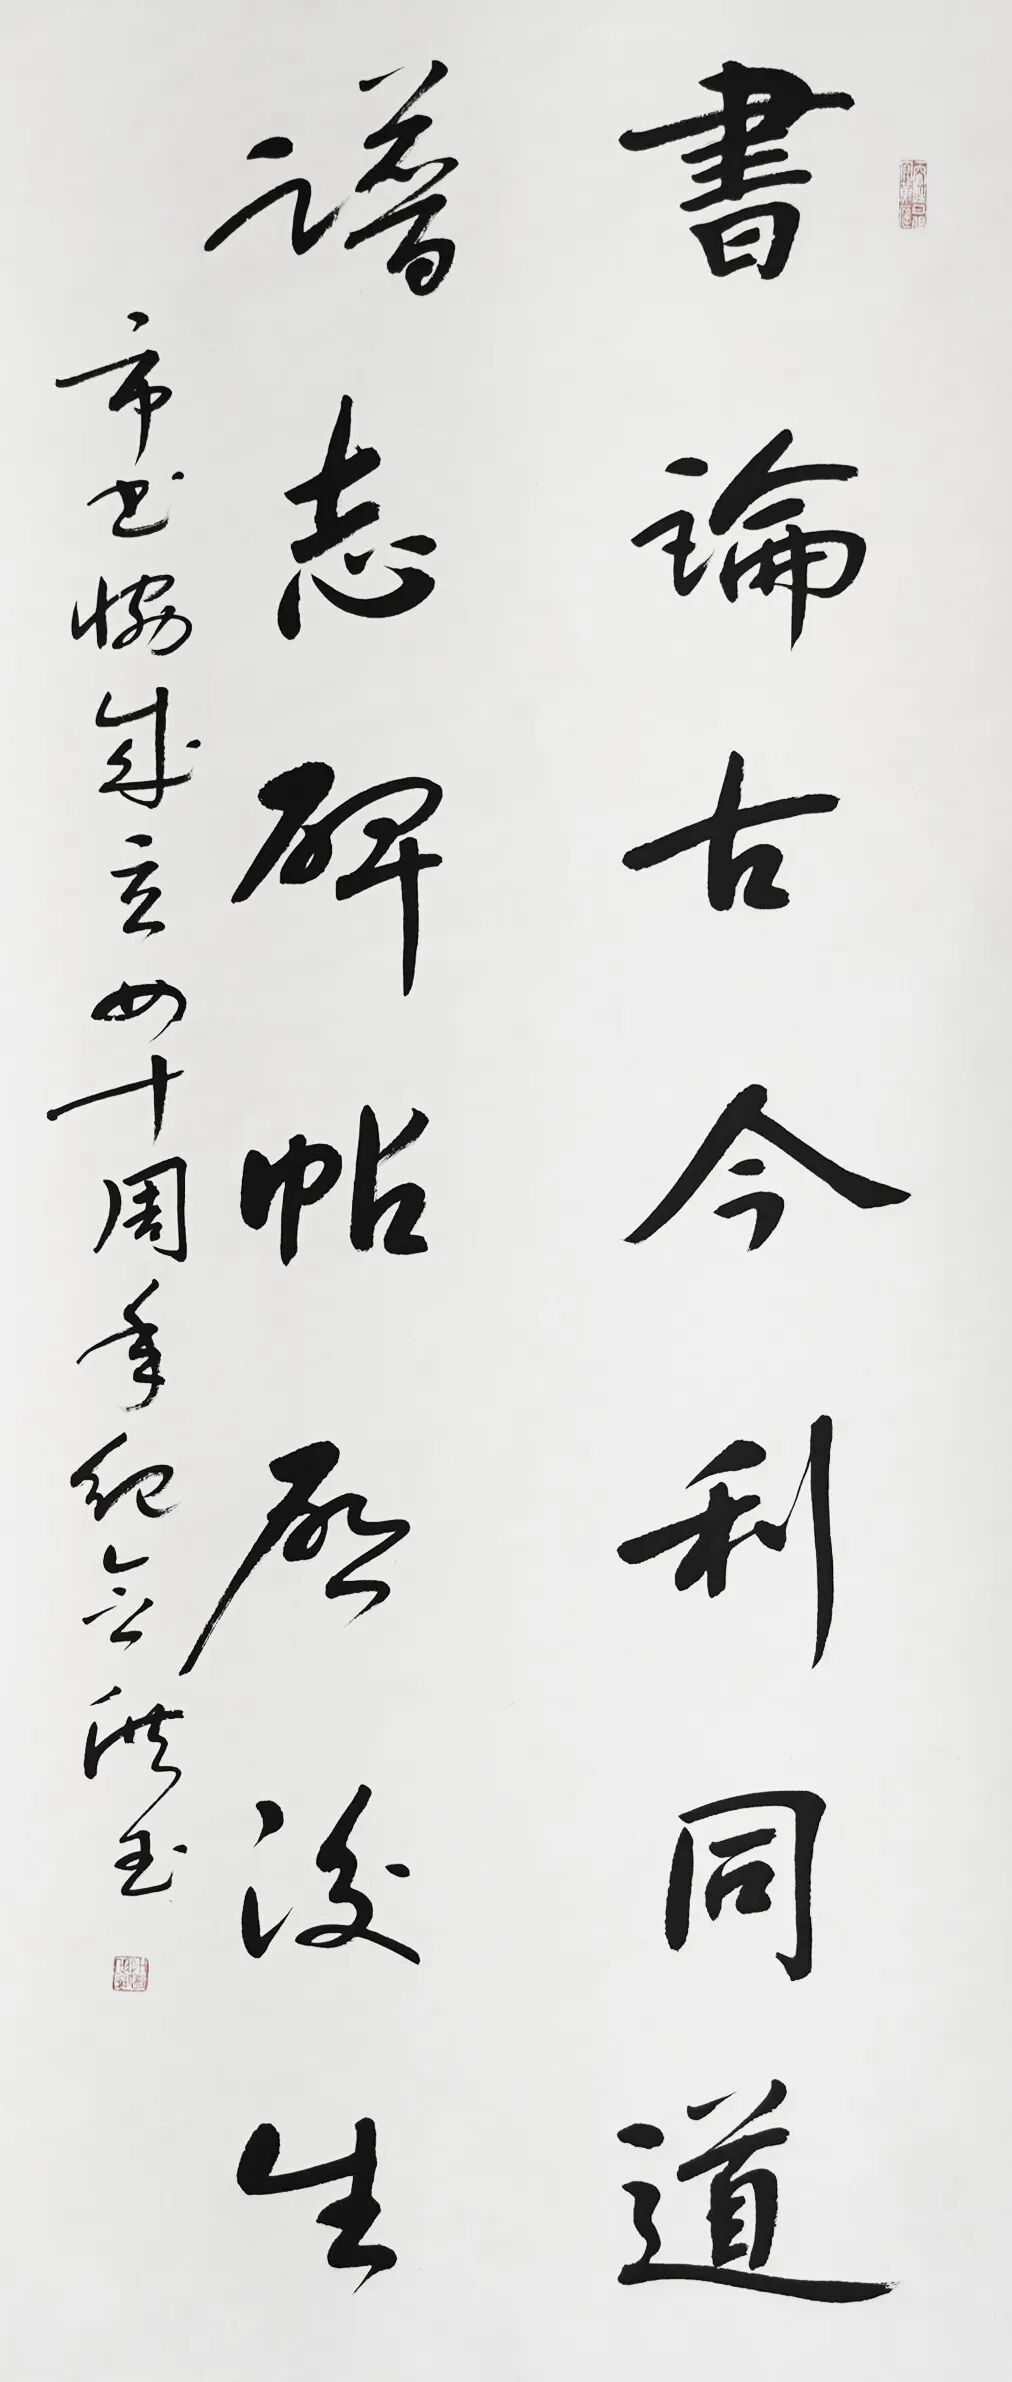 書論古今利同道
譜志碑帖啟後生
市书協成立四十周年纪念洪玉